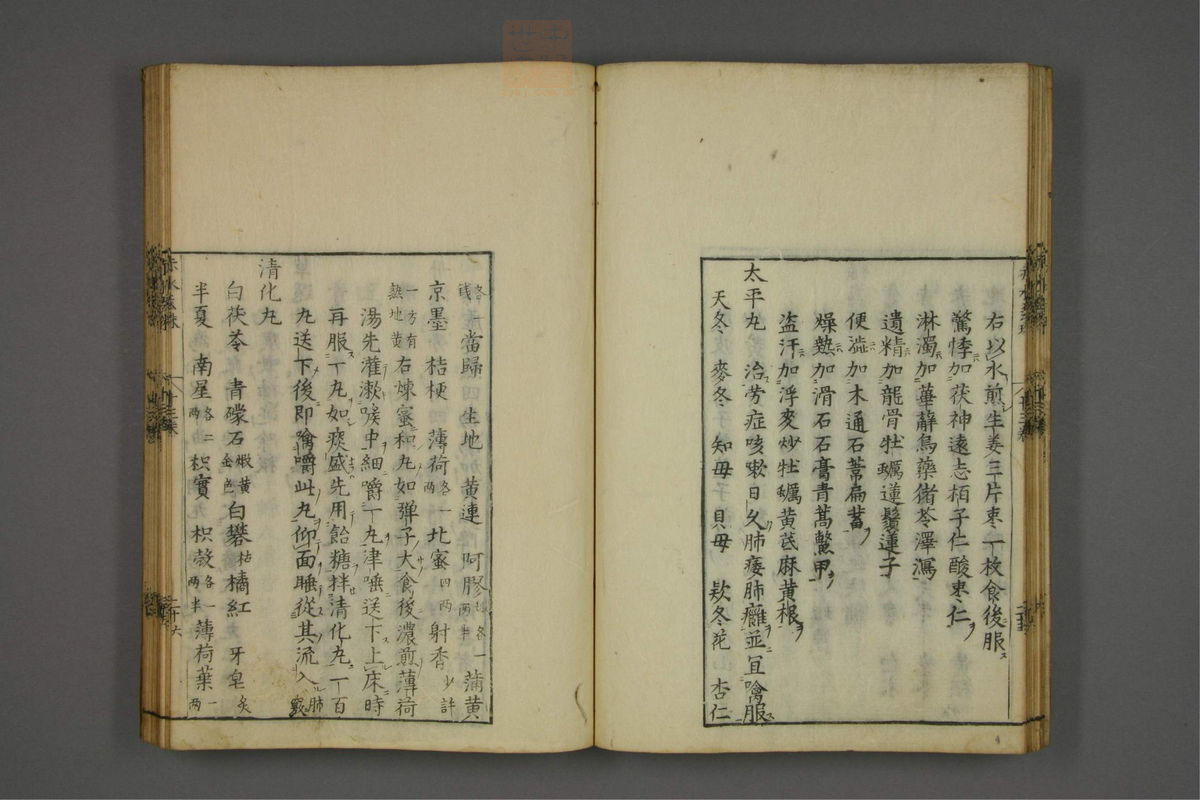 右以水煎生姜三片枣一枚食後服
驚悸加茯神遠志栢子仁酸枣仁
淋濁加萆薢烏藥猪苓澤瀉
遺精加龍骨牡蠣蓮鬚蓮子
便澁加木通石葦扁蓄
燥熱加滑石石膏青蒿鱉甲
盗汗加浮麥炒牡蠣黄芪麻黄根
太平丸 治劳症咳嗽日久肺痿肺癰並宜噙服
天冬 麥冬 知毋 貝毋 欵冬花 杏仁
各一錢 當歸 生地 黄連 阿膠各一兩半 蒲黄
京墨 桔梗 薄荷各一兩 北蜜四兩 射香少許
一方有熟地黄 右煉蜜和丸如弹子大食後濃煎薄荷
湯先灌漱喉中細嚼一丸津唾送下上床時
再服一丸如痰盛先用飴糖拌清化丸一百
丸送下後即噙嚼此丸仰面睡從其流入肺竅
清化丸
白茯苓 青礞石煅黄金色 白礬枯 橘紅 牙皂炙
半夏 南星各二兩 枳實 枳殻各一兩半 薄荷葉一兩